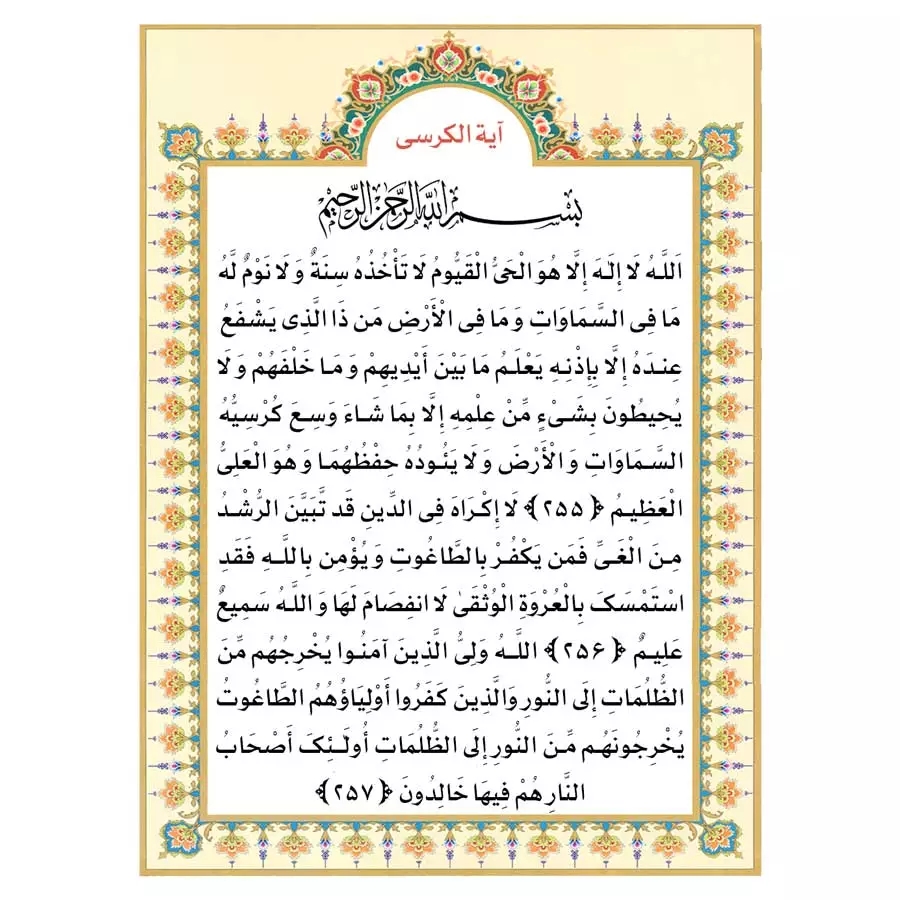 آیة الکرسی
بسم الله الرحمن الرحیم
اَللَّهُ لَا إِلَهَ إِلَّا هُوَ الْحَیُّ الْقَیُّومُ لَا تَأْخُذُهُ سِنَةٌ وَلَا نَوْمٌ لَّهُ
مَا فِی السَّمَاوَاتِ وَمَا فِی الْأَرْضِ مَن ذَا الَّذِی یَشْفَعُ
عِندَهُ إِلَّا بِإِذْنِهِ یَعْلَمُ مَا بَیْنَ أَیْدِیهِمْ وَمَا خَلْفَهُمْ وَلَا
یُحِیطُونَ بِشَیْءٍ مِّنْ عِلْمِهِ إِلَّا بِمَا شَاءَ وَسِعَ کُرْسِیُّهُ
السَّمَاوَاتِ وَالْأَرْضَ وَلَا یَئُودُهُ حِفْظُهُمَا وَهُوَ الْعَلِیُّ
الْعَظِیمُ ﴿۲۵۵﴾ لَا إِکْرَاهَ فِی الدِّینِ قَد تَّبَیَّنَ الرُّشْدُ
مِنَ الْغَیِّ فَمَن یَکْفُرْ بِالطَّاغُوتِ وَیُؤْمِن بِاللَّهِ فَقَدِ
اسْتَمْسَکَ بِالْعُرْوَةِ الْوُثْقَیٰ لَا انفِصَامَ لَهَا وَاللَّهُ سَمِیعٌ
عَلِیمٌ ﴿۲۵۶﴾ اللَّهُ وَلِیُّ الَّذِینَ آمَنُوا یُخْرِجُهُم مِّنَ
الظُّلُمَاتِ إِلَی النُّورِ وَالَّذِینَ کَفَرُوا أَوْلِیَاؤُهُمُ الطَّاغُوتُ
یُخْرِجُونَهُم مِّنَ النُّورِ إِلَی الظُّلُمَاتِ أُولَٰئِکَ أَصْحَابُ
النَّارِ هُمْ فِیهَا خَالِدُونَ ﴿۲۵۷﴾